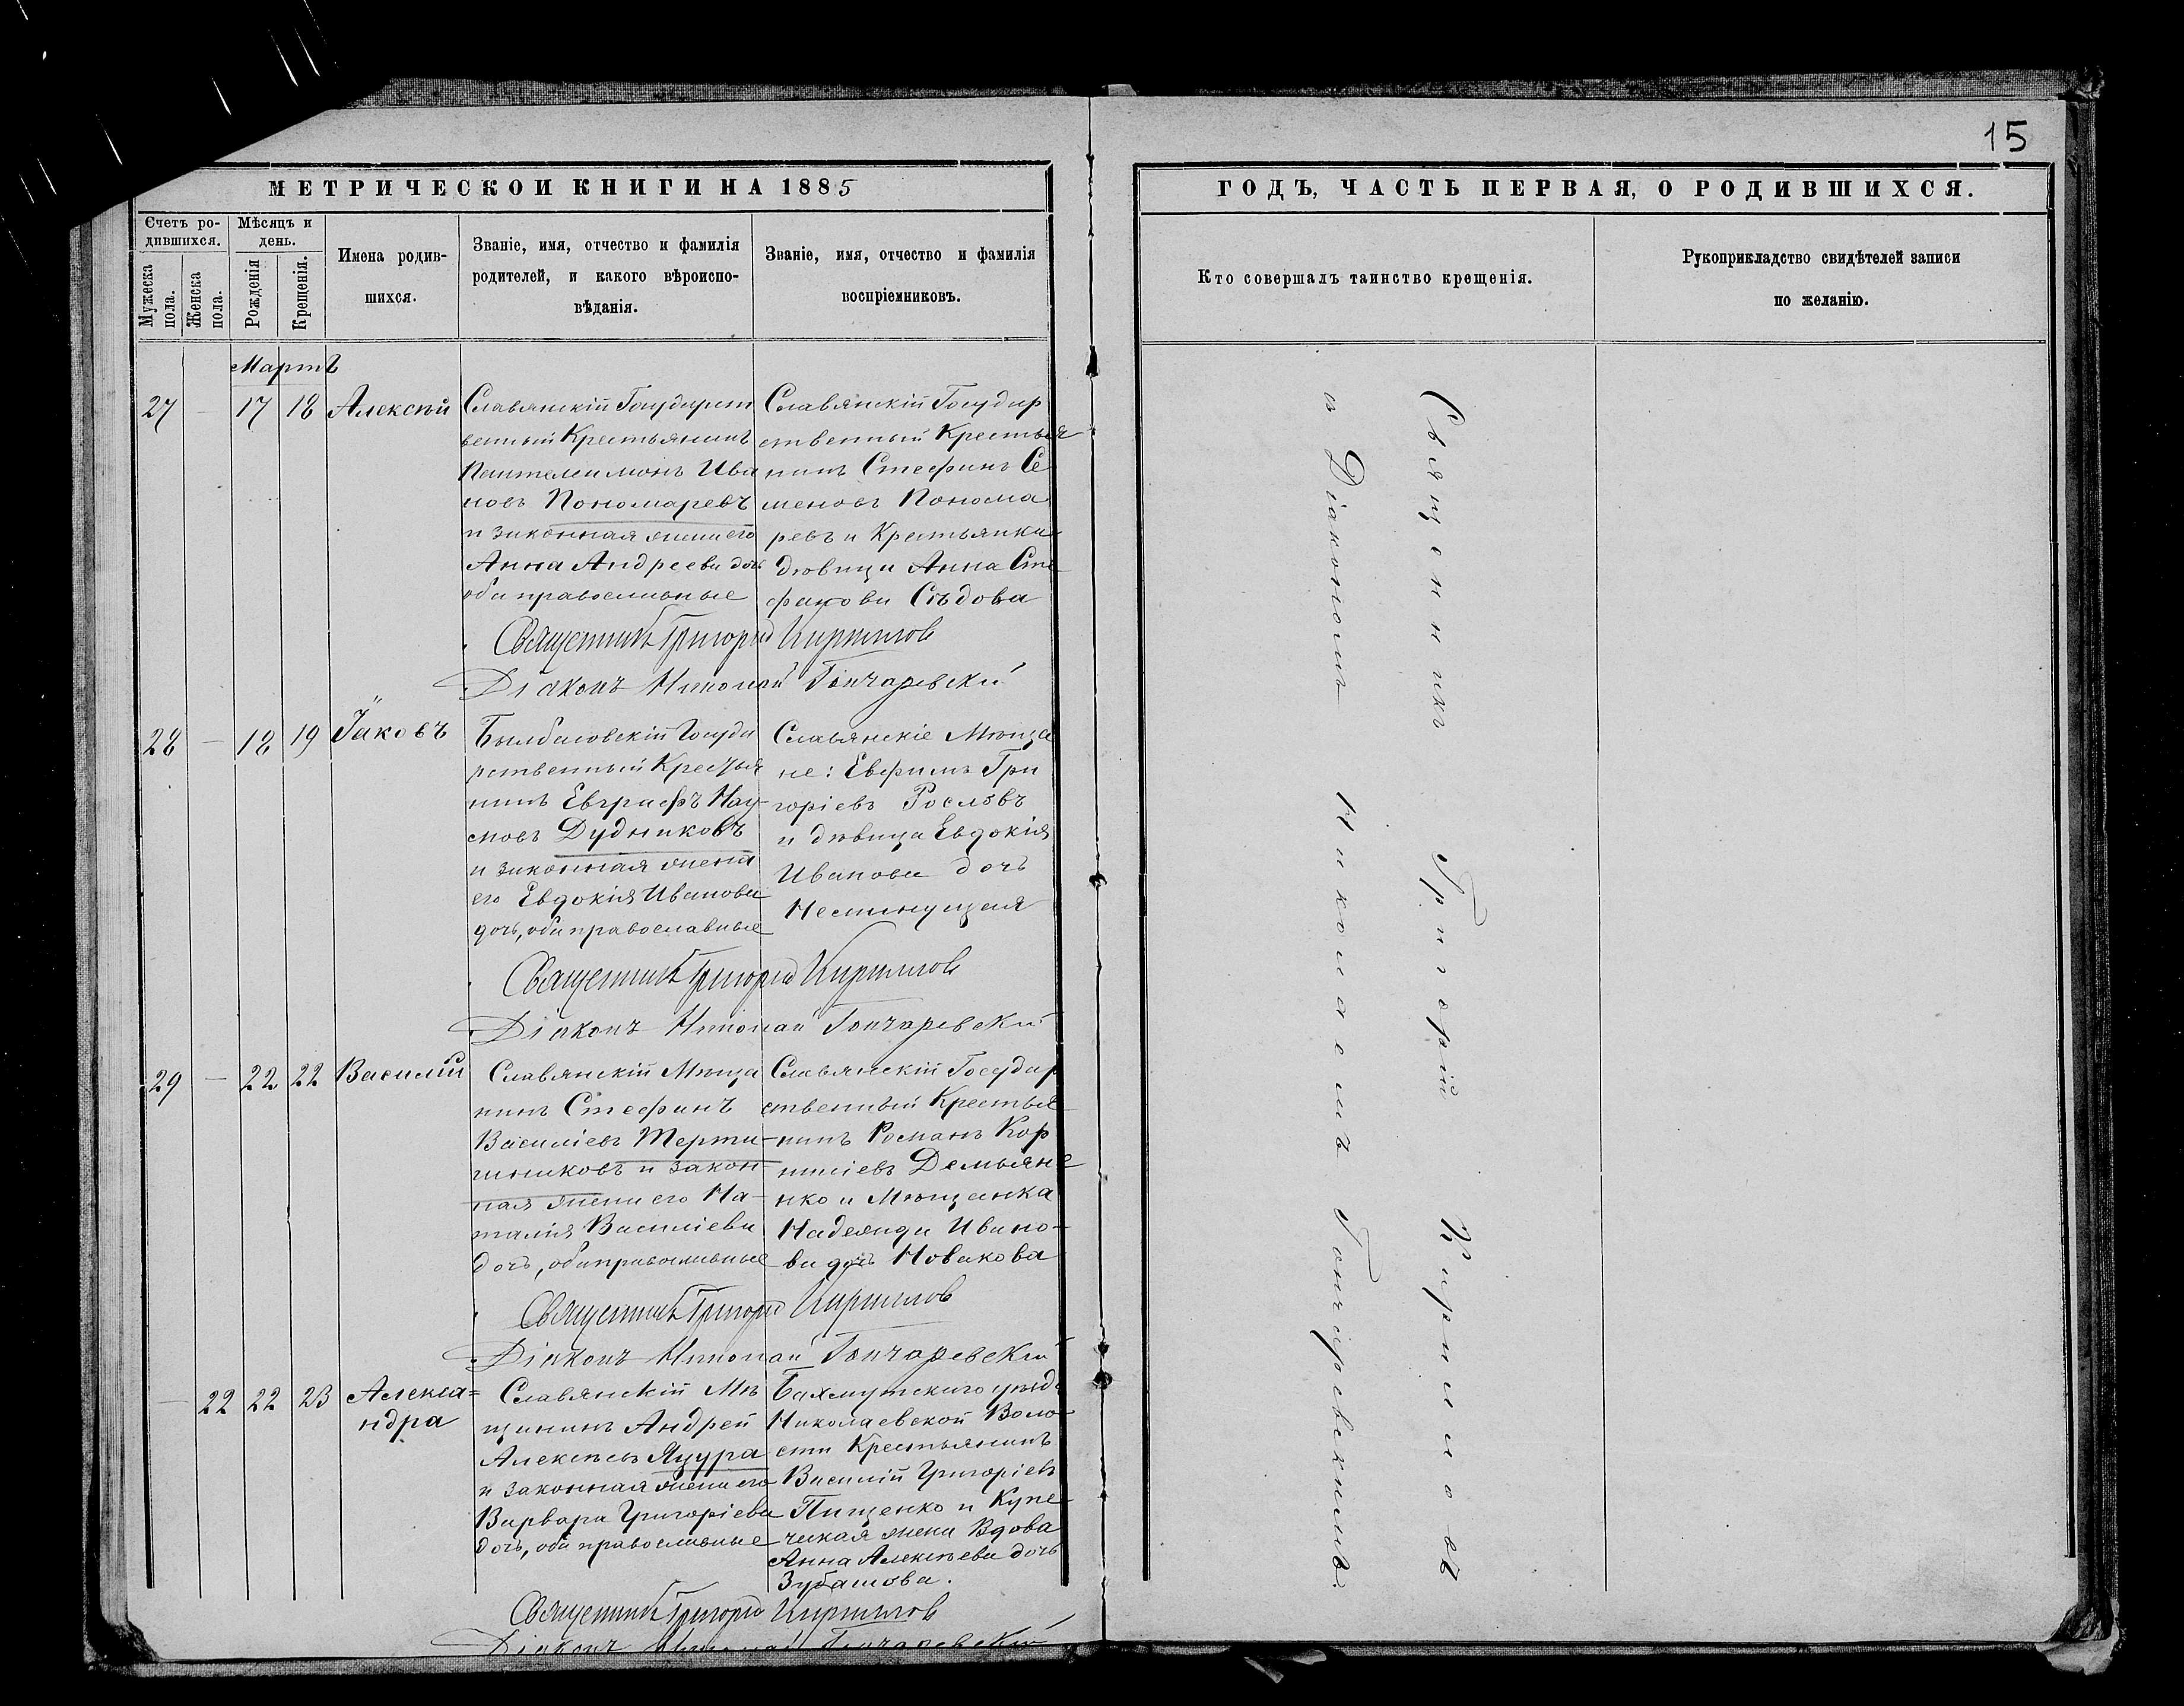 15
МЕТРИЧЕСКОЙ КНИГИ НА 1885
ГОДЪ, ЧАСТЬ ПЕРВАЯ, О РОДИВШИХСЯ.
Счетъ ро-
дившихся.
Мужеска
пола.
Женска
пола.
Мѣсяцъ и
день.
Рожденія
Крещенія.
Имена родив-
шихся.
Званіе, имя, отчество и фамилія
родителей, и какого вѣроиспо-
вѣданія.
Званіе, имя, отчество и фамилія
воспріемниковъ.
Кто совершалъ таинство крещенія.
Рукоприкладство свидѣтелей записи
по желанію.
Мартъ
27 — 17 18 Алексѣй
Славянскій Государст
венный Крестьянинъ
Пантелеимонъ Ива
новъ Пономаревъ
и законная жена его
Анна Андреева дочь
оба православные
Славянскій Государ
ственный Крестья
нинъ Стефанъ Се
меновъ Понома
ревъ и Крестьянка
дѣвица Анна Сте
фанова Сѣдова
Священникъ Григорій Кирилловъ
Діаконъ Николай Гончаревскій
28 — 18 19 Іаковъ
Былбасовскій Госуда
рственный Крестья
нинъ Евграфъ Нау-
мовъ Дудниковъ
и законная жена
его Евдокія Иванова
дочь, оба православные
Славянскіе Мѣща
не: Евфимъ Гри
горіевъ Рословъ
и дѣвица Евдокія
Иванова дочь
Священникъ Григорій Кирилловъ
Діаконъ Николай Гончаревскій
29 — 22 22 Василій
Славянскій Мѣща
нинъ Стефанъ
Василіевъ Терти-
шниковъ и закон-
ная жена его На-
талія Василіева
дочь, оба православные
Славянскій Государ
ственный Крестья
нинъ Романъ Кор
ниліевъ Демьяне
нко и Мѣщанка
Надежда Ивано-
ва дочь Новакова
Священникъ Григорій Кирилловъ
Діаконъ Николай Гончаревскій
— 22 22 23 Алекса=
ндра
Славянскій Мѣ
щанинъ Андрей
Алексѣевъ Яцура
и законная жена его
Варвара Григоріева
дочь, оба православные
Бахмутскаго уѣзда
Николаевской Воло-
сти Крестьянинъ
Василій Григоріевъ
Пищенко и Купе-
ческая жена Вдова
Анна Алексѣева дочь
Зубашова.
Священникъ Григорій Кирилловъ
Діаконъ Николай Гончаревскій
Священникъ Григорій Кирилловъ
съ Діакономъ Николаемъ Гончаревскимъ.